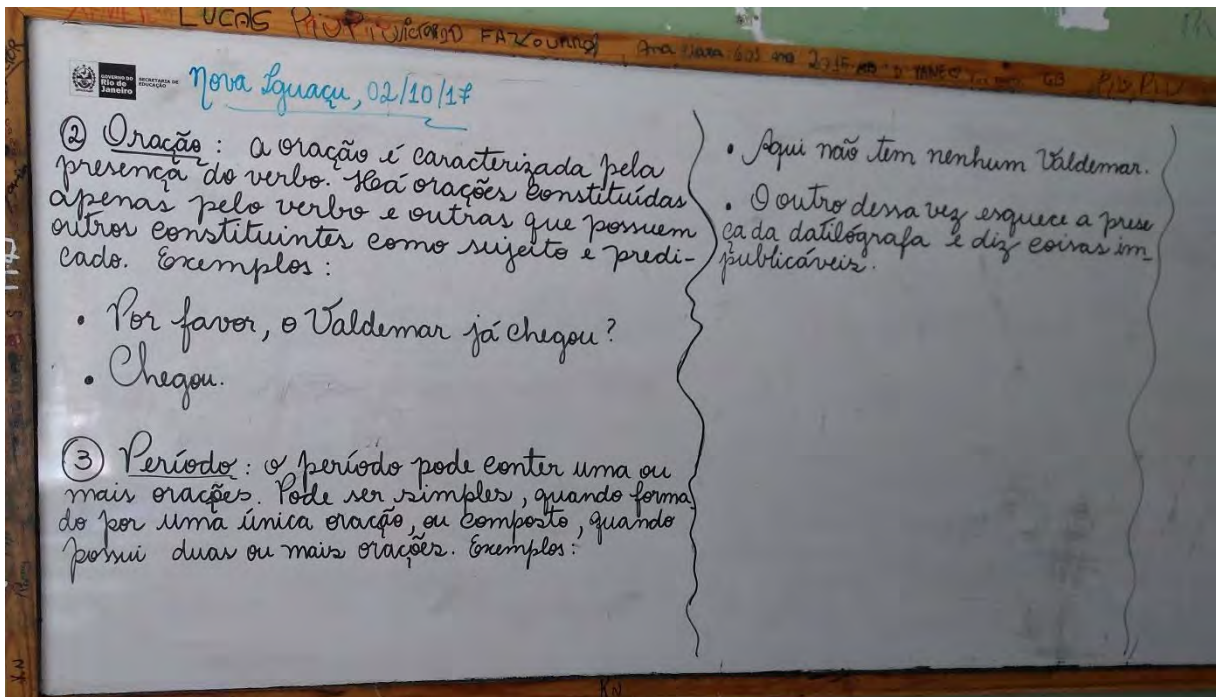 LUCAS PIU PIU VICTOR
GOVERNO DO
Rio de
Janeiro
SECRETARIA DE
EDUCAÇÃO
Nova Iguaçu, 02/10/17
② Oração: a oração é caracterizada pela
presença do verbo. Há orações constituídas
apenas pelo verbo e outras que possuem
outros constituintes como sujeito e predi-
cado. Exemplos:
• Por favor, o Valdemar já chegou?
• Chegou.
③ Período: o período pode conter uma ou
mais orações. Pode ser simples, quando forma
do por uma única oração, ou composto, quando
possui duas ou mais orações. Exemplos:
• Aqui não tem nenhum Valdemar.
• O outro dessa vez esquece a prese
ça da datilógrafa e diz coisas im_
publicáveis.
KN